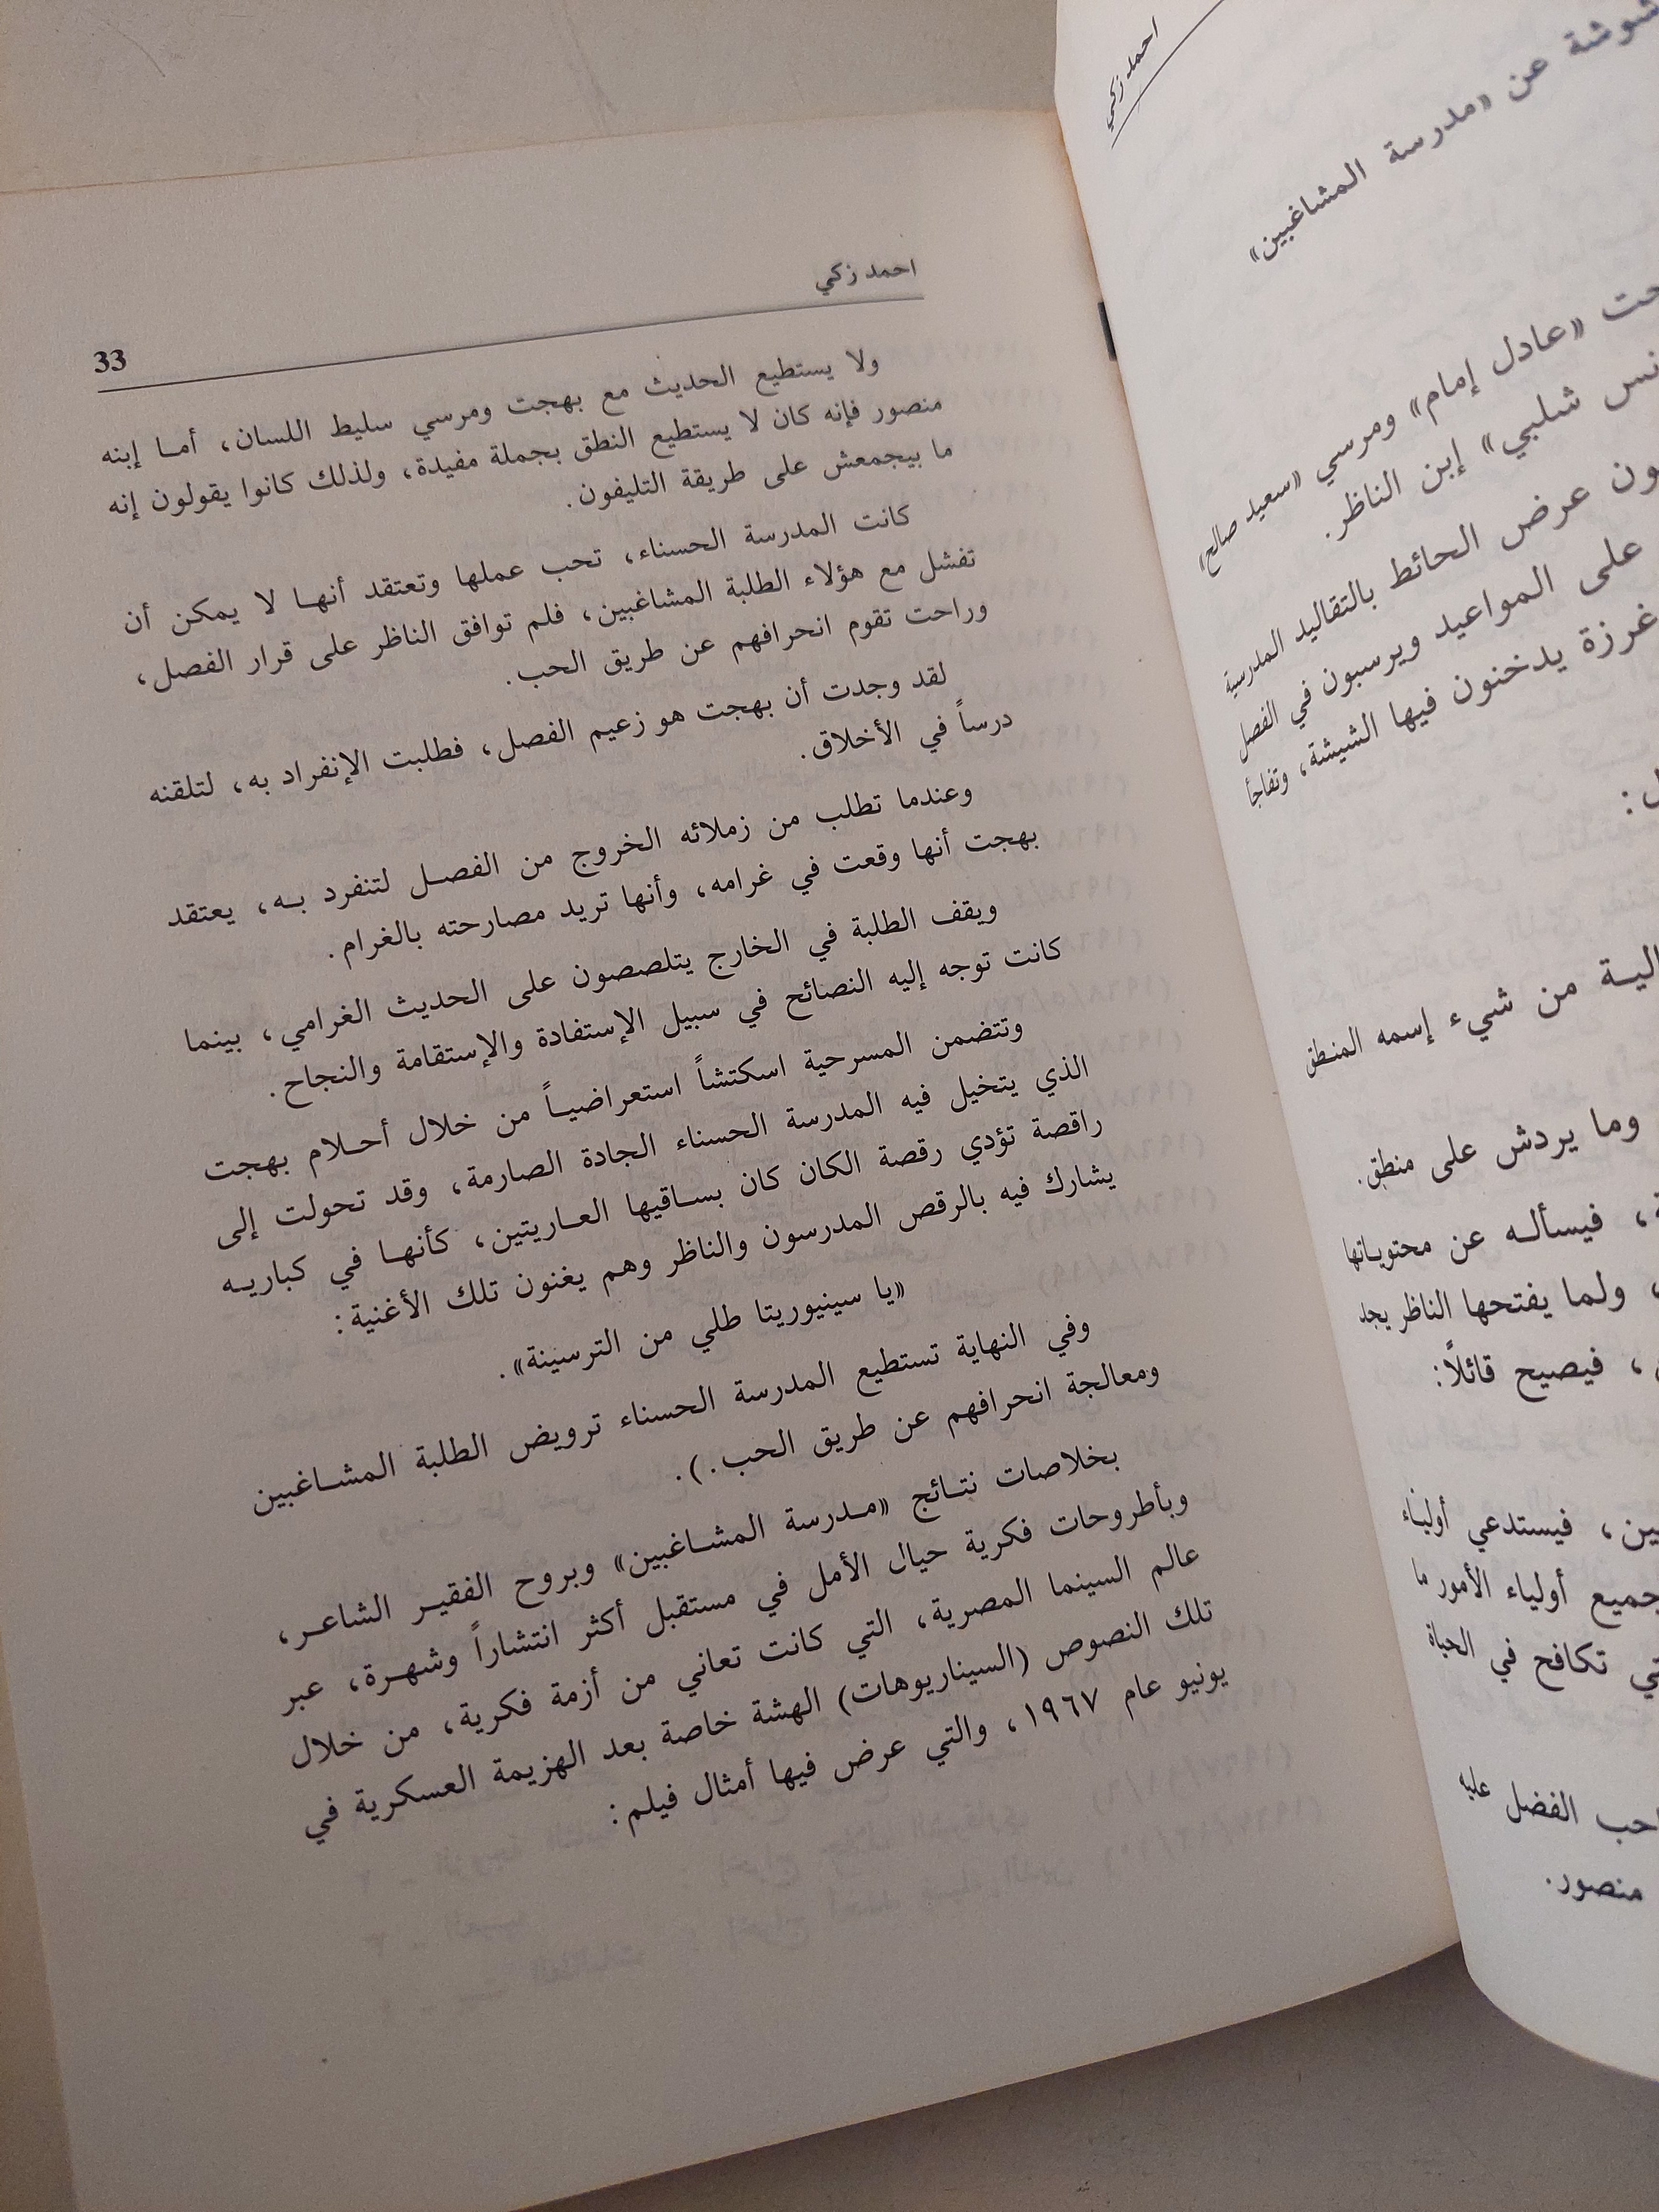 احمد زكي
عن «مدرسة المشاغبين»
«عادل إمام» ومرسي «سعيد صالح»
شلبي» إبن الناظر.
عرض الحائط بالتقاليد المدرسية
على المواعيد ويرسبون في الفصل
غرزة يدخنون فيها الشيشة، وتفاجأ
من شيء إسمه المنطق
وما يردش على منطق.
، فيسأله عن محتوياتها
، ولما يفتحها الناظر يجد
، فيصيح قائلاً:
، فيستدعي أولياء
جميع أولياء الأمور ما
تكافح في الحياة
الفضل عليه
منصور.
احمد زكي
33
ولا يستطيع الحديث مع بهجت ومرسي سليط اللسان، أما إبنه
منصور فإنه كان لا يستطيع النطق بجملة مفيدة، ولذلك كانوا يقولون إنه
ما بيجمعش على طريقة التليفون.
كانت المدرسة الحسناء، تحب عملها وتعتقد أنها لا يمكن أن
تفشل مع هؤلاء الطلبة المشاغبين، فلم توافق الناظر على قرار الفصل،
وراحت تقوم انحرافهم عن طريق الحب.
لقد وجدت أن بهجت هو زعيم الفصل، فطلبت الإنفراد به، لتلقنه
درساً في الأخلاق.
وعندما تطلب من زملائه الخروج من الفصل لتنفرد به، يعتقد
بهجت أنها وقعت في غرامه، وأنها تريد مصارحته بالغرام.
ويقف الطلبة في الخارج يتلصصون على الحديث الغرامي، بينما
كانت توجه إليه النصائح في سبيل الإستفادة والإستقامة والنجاح.
وتتضمن المسرحية اسكتشاً استعراضياً من خلال أحلام بهجت
الذي يتخيل فيه المدرسة الحسناء الجادة الصارمة، وقد تحولت إلى
راقصة تؤدي رقصة الكان كان بساقيها العاريتين، كأنها في كباريه
يشارك فيه بالرقص المدرسون والناظر وهم يغنون تلك الأغنية:
«يا سينيوريتا طلي من الترسينة».
وفي النهاية تستطيع المدرسة الحسناء ترويض الطلبة المشاغبين
ومعالجة انحرافهم عن طريق الحب.).
بخلاصات نتائج «مدرسة المشاغبين» وبروح الفقير الشاعر،
وبأطروحات فكرية حيال الأمل في مستقبل أكثر انتشاراً وشهرة، عبر
عالم السينما المصرية، التي كانت تعاني من أزمة فكرية، من خلال
تلك النصوص (السيناريوهات) الهشة خاصة بعد الهزيمة العسكرية في
يونيو عام ١٩٦٧، والتي عرض فيها أمثال فيلم: